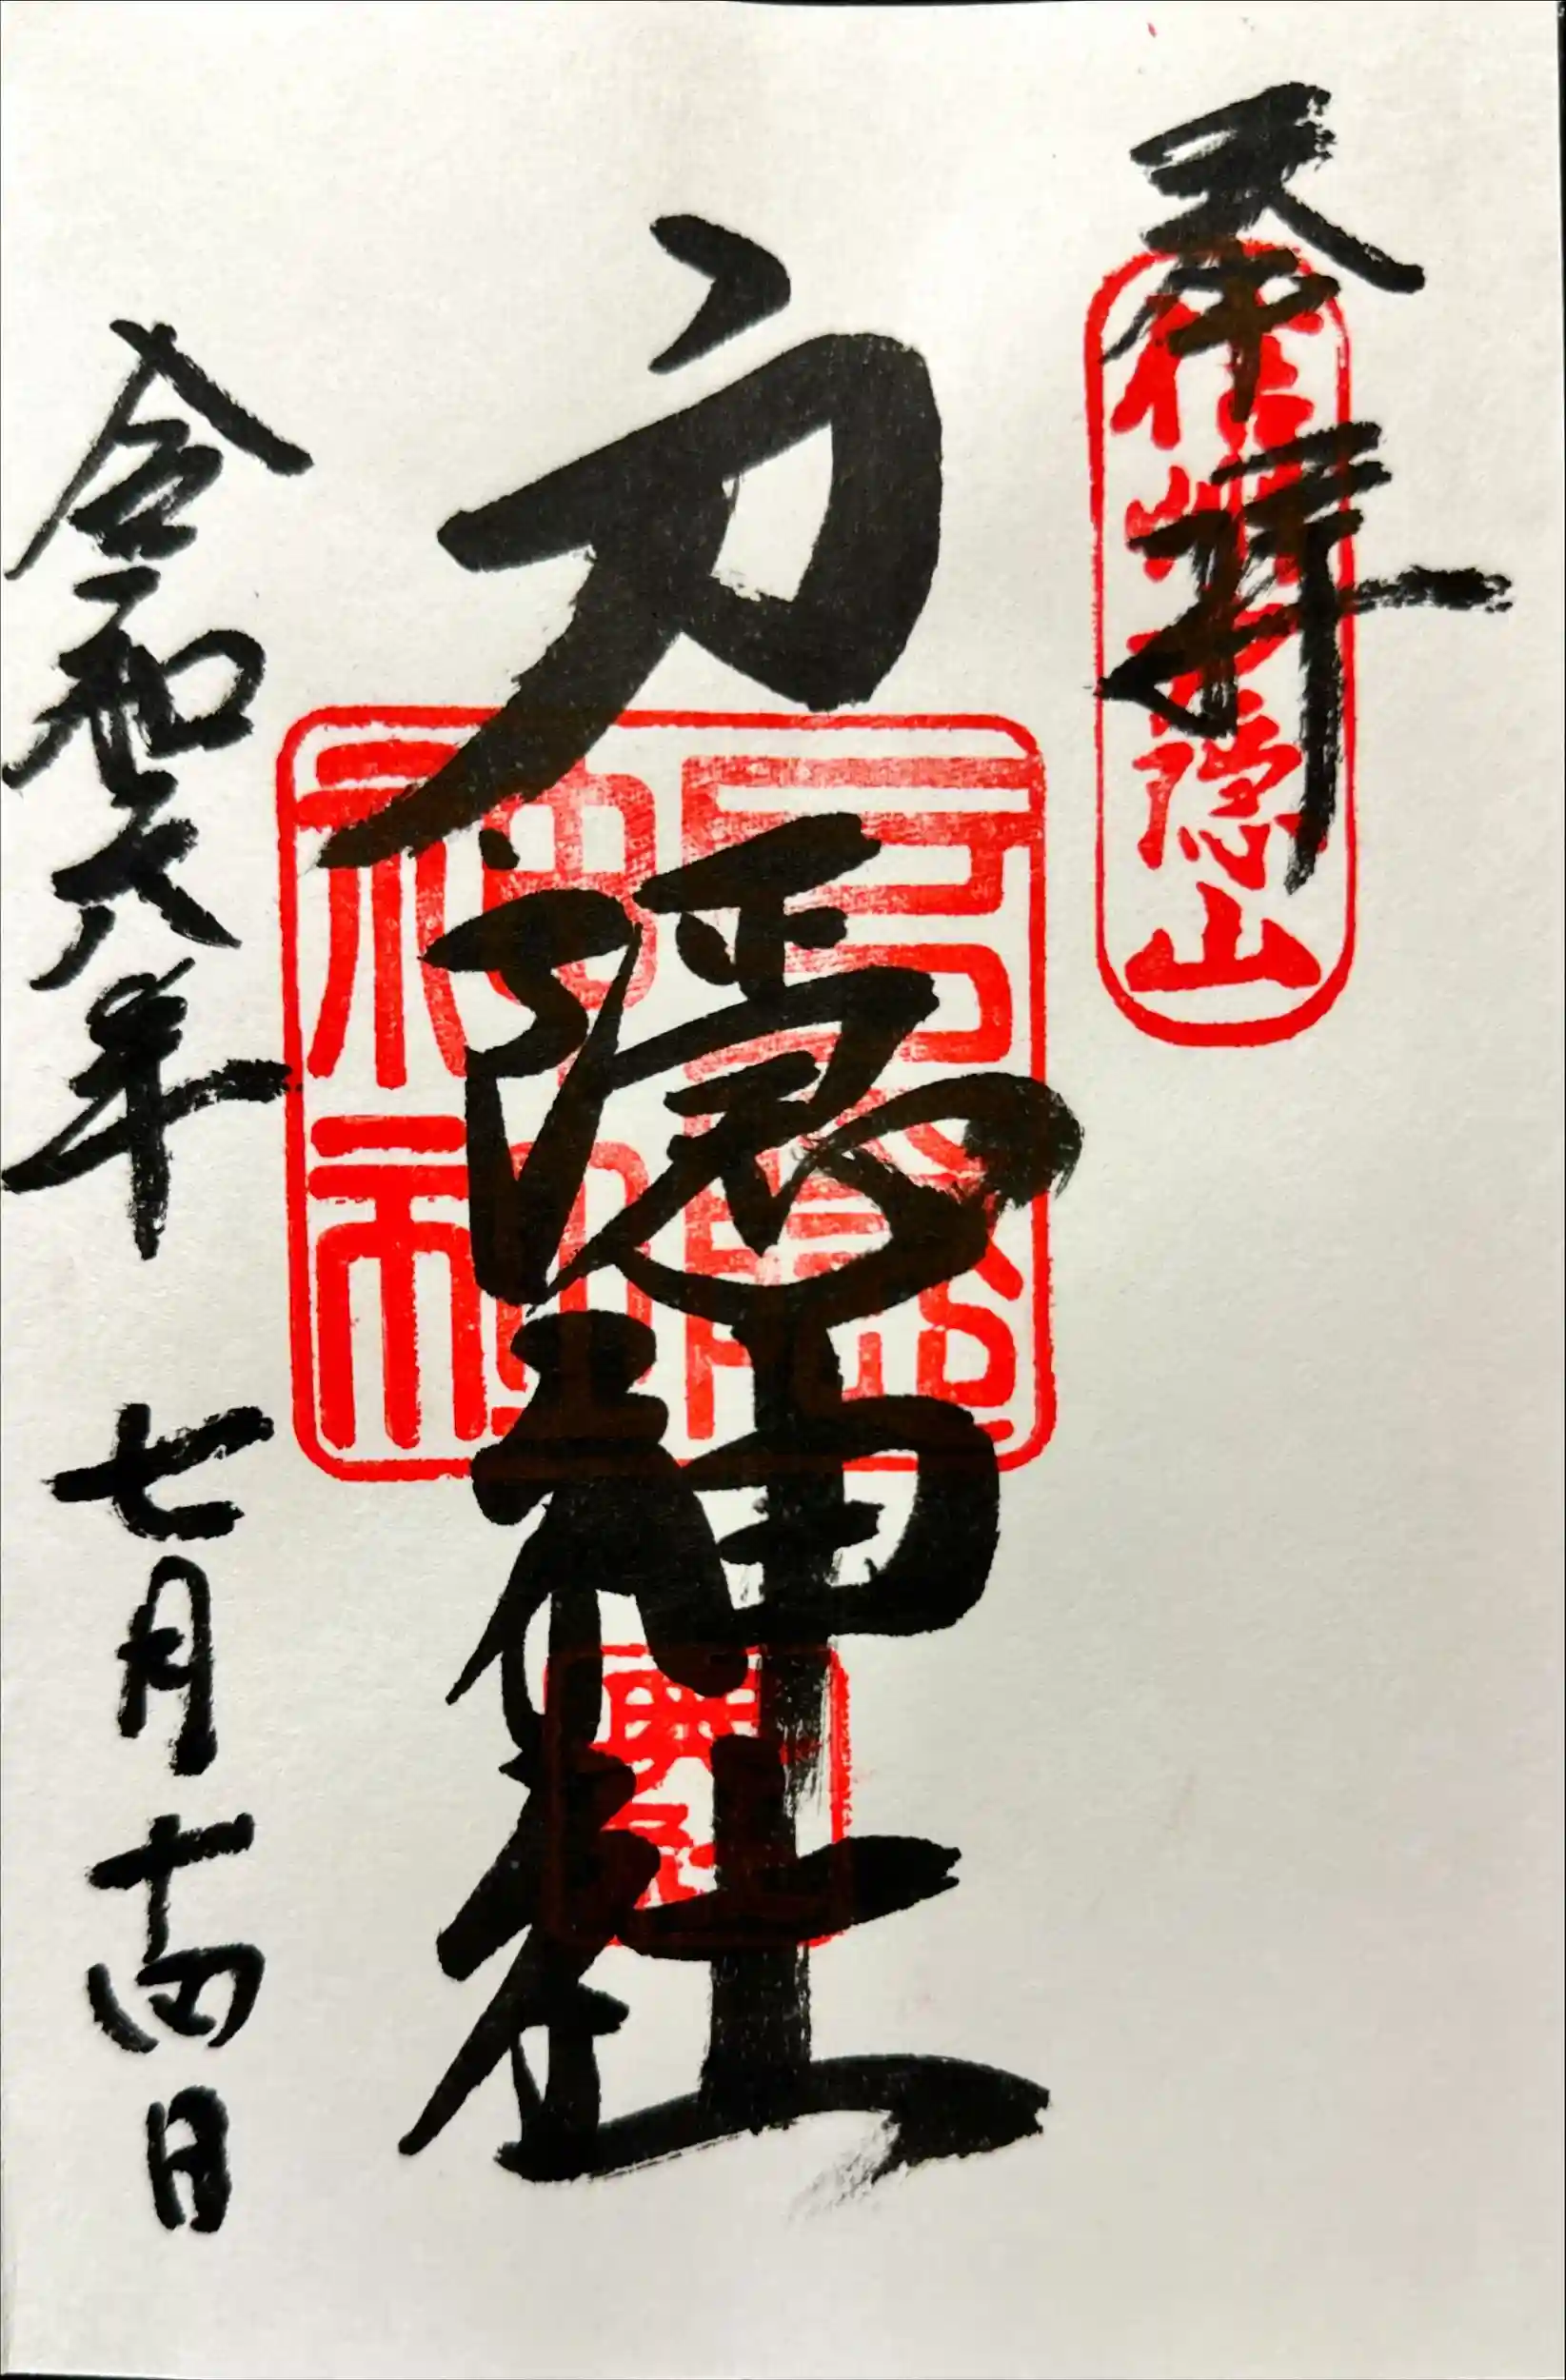 奉拝
信州戸隠山
戸隠神社
戸隠神社
奥社
令和六年 七月十四日